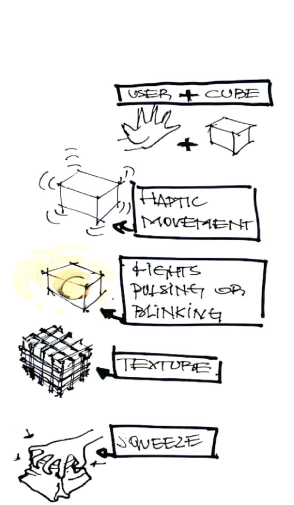 USER + CUBE
+
HAPTIC
MOVEMENT
LIGHTS
PULSING OR
BLINKING
TEXTURE
SQUEEZE